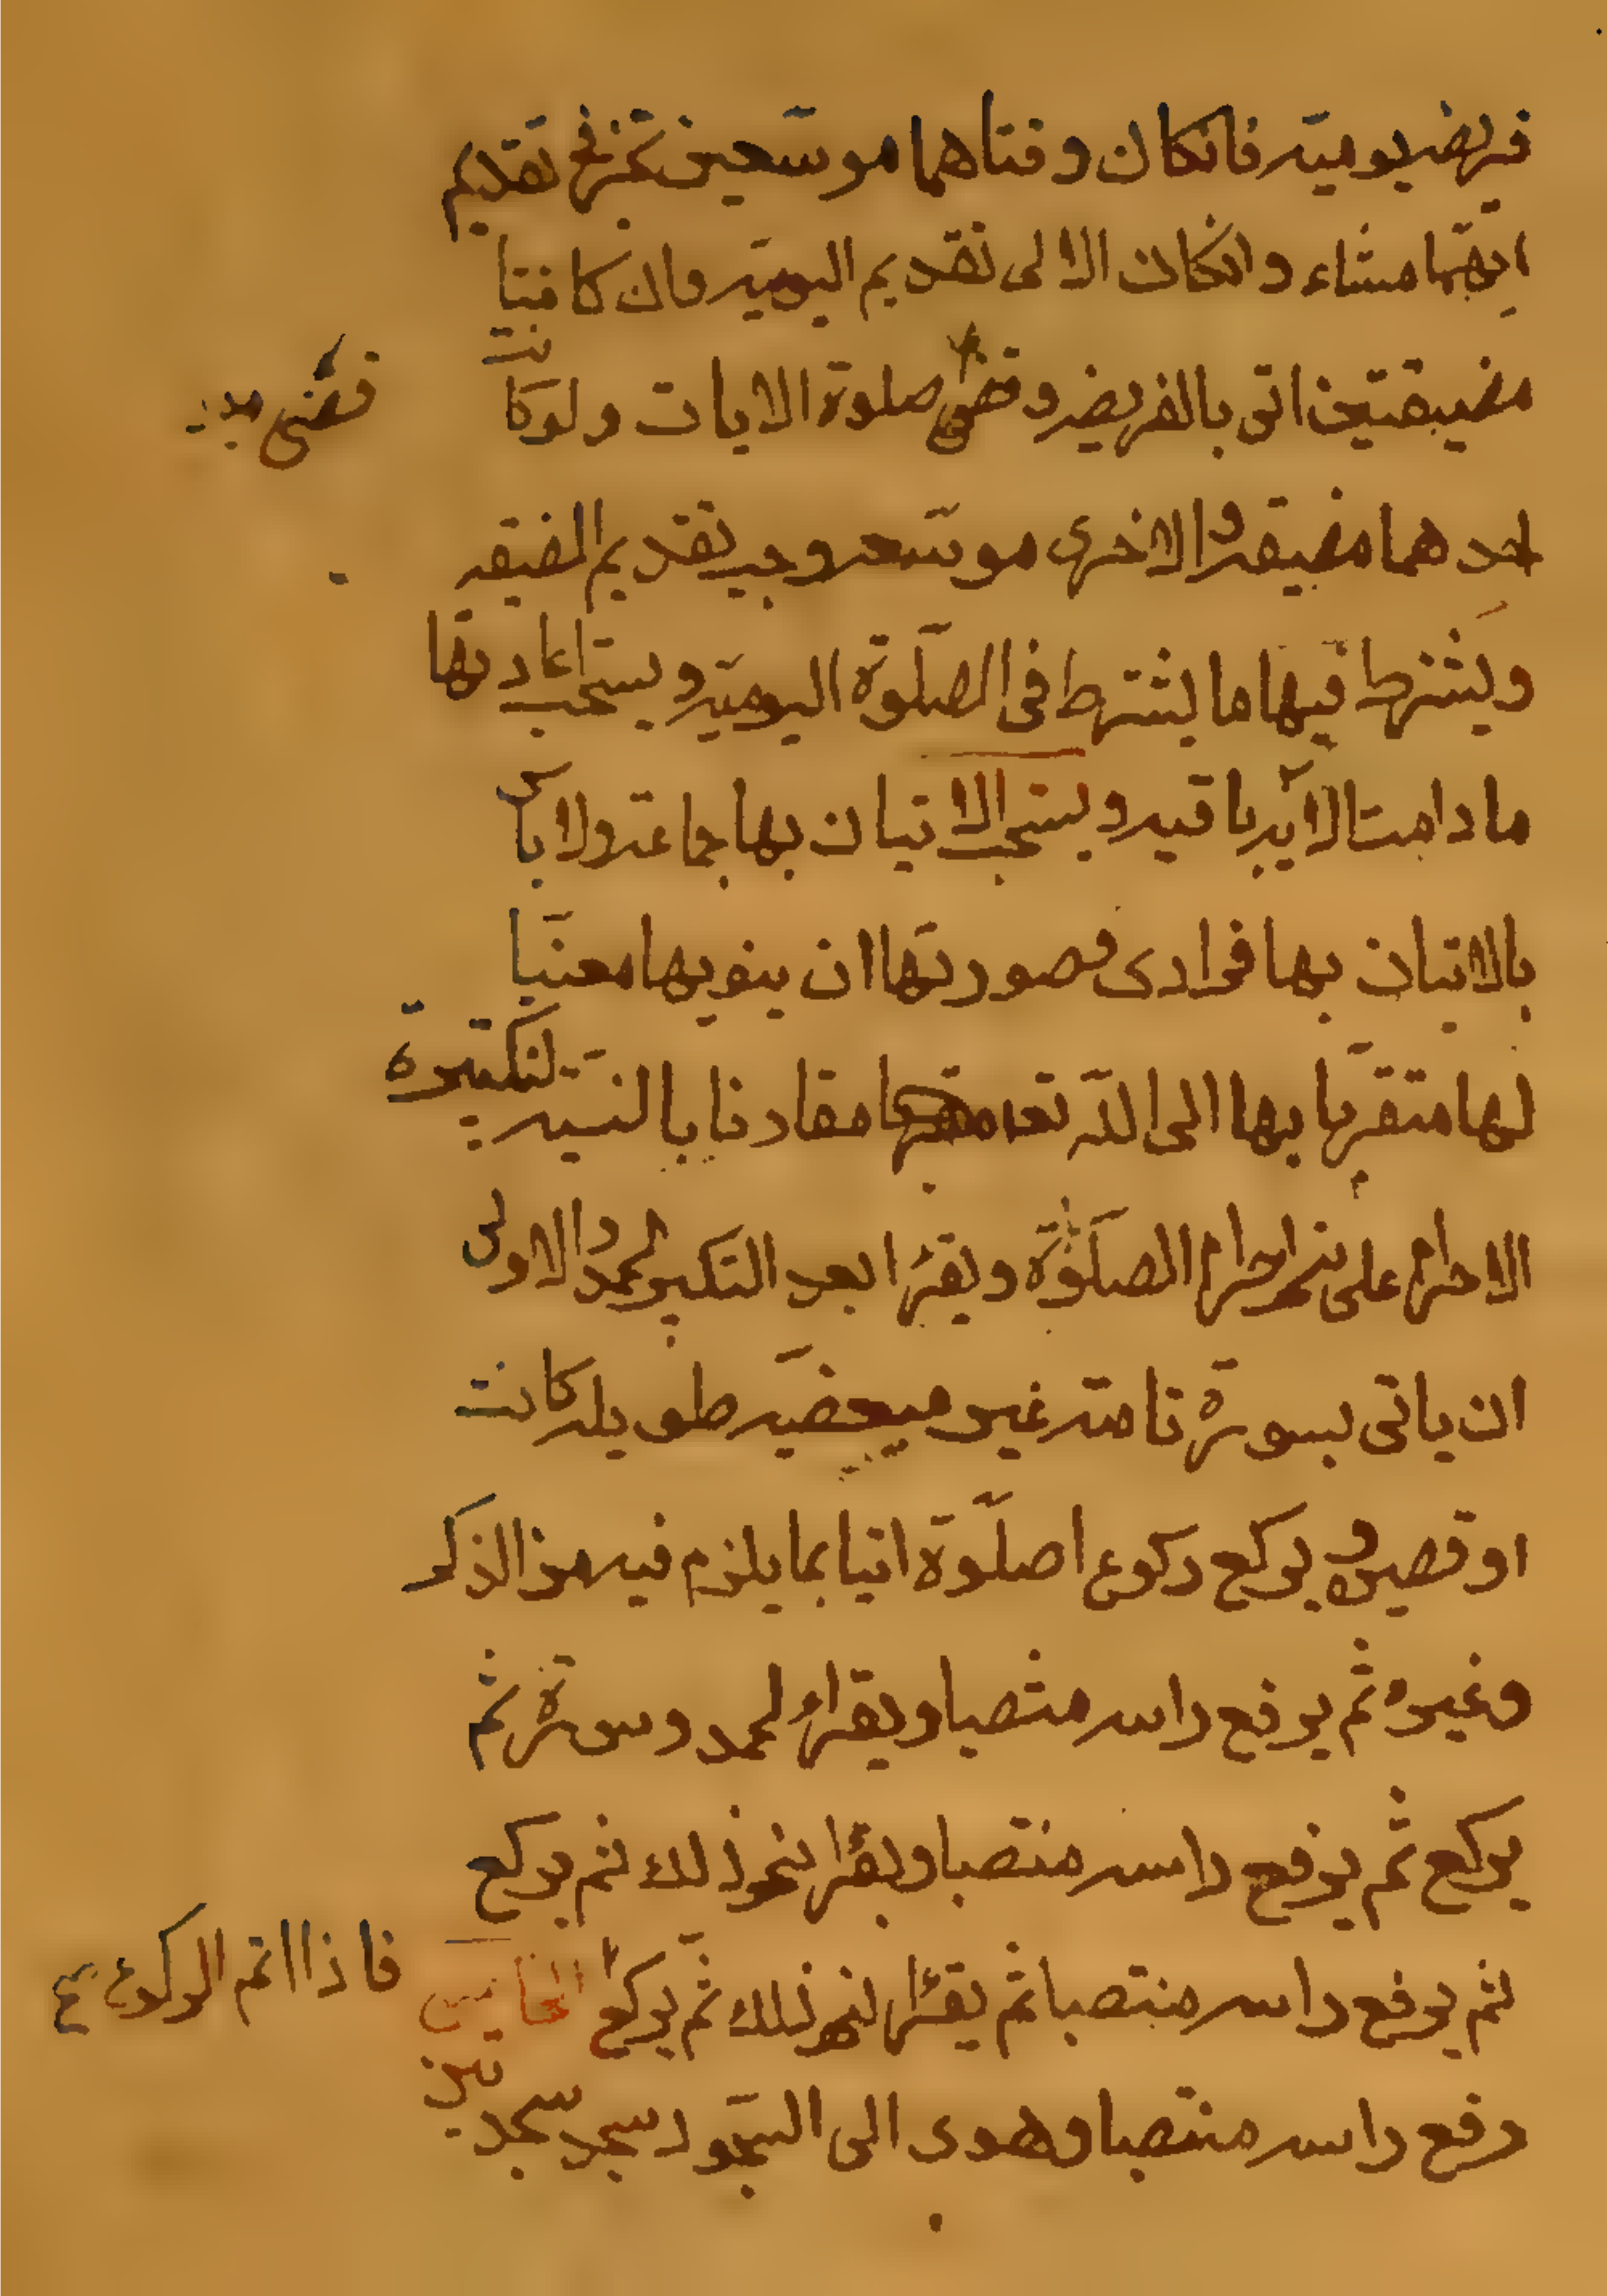 فريضه يوميّه فانكان وقتاهما موسّعين تخيّر في تقديم
ايّهما شاء وانكان الاولى تقديم اليوميّه وان كانتا
مضيقتين اتى بالفريضه وقضى صلوة الايات ولوكانت
قضى
احدهما مضيقه والاخرى موسّعه وجب تقديم المضيقه
ويشترط فيها ما يشترط في الصلوة اليوميّه ويستحب اعادتها
ما دامت الايّه باقيه ويستحب الاتيان بها جماعة ولا باس
بالاتيان بها فرادى فصورتها ان ينويها معنيّا
لها متقرّبا بها الى اللّه تعا مقارنا بالنيّه لتكبيرة
الاحرام على نحو احرام الصلوة ويقرا بعد التكبير الحمد والاولى
ان ياتى بسورة تامّة غير مبعضيّه طويله كانت
او قصيره ويركع ركوع الصلّوة اتيا بما يلزم فيه من الذكر
وغيره ثم يرفع راسه منتصبا ويقراء الحمد وسورة ثم
يركع ثم يرفع راسه منتصبا ويقرا نحو ذلك ثم يركع
ثم يرفع راسه منتصبا ثم يقرا نحو ذلك ثم يركع الخامس
فاذا اتم الركوع
رفع راسه منتصبا وهوى الى السّجود سجد سجدتين